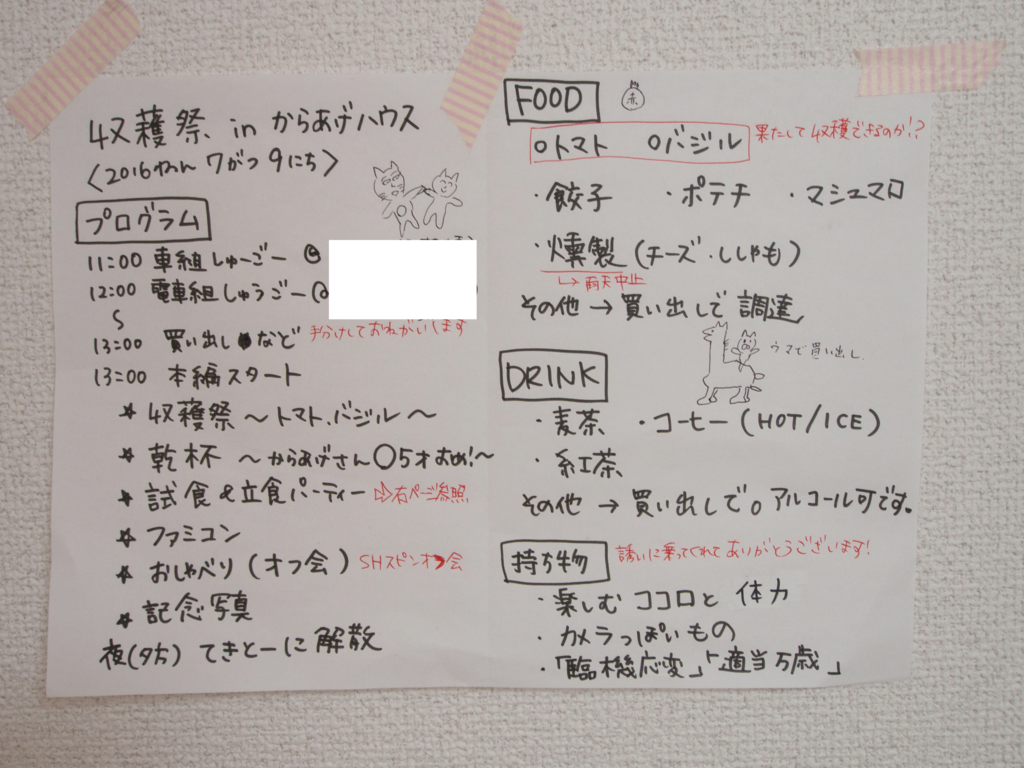 収穫祭 in からあげハウス
〈2016ねん 7がつ 9にち〉
プログラム
11:00 車組しゅーごー @
12:00 電車組しゅうごー(@
〜
13:00 買い出しなど 手分けしておねがいします
13:00 本編スタート
★ 収穫祭 〜トマト、バジル〜
★ 乾杯 〜からあげさん〇5才おめ!〜
★ 試食&立食パーティー ⇨右ページ参照
★ ファミコン
★ おしゃべり (オフ会) SHスピンオフ会
★ 記念写真
夜(夕方) てきとーに解散
FOOD 赤
〇トマト 〇バジル 果たして収穫できるのか!?
・餃子 ・ポテチ ・マシュマロ
・燻製 (チーズ・ししゃも)
↳ 雨天中止
その他 → 買い出しで 調達
ウマで買い出し.
DRINK
・麦茶 ・コーヒー (HOT/ICE)
・紅茶
その他 → 買い出しで。アルコール可です。
持ち物 誘いに乗ってくれてありがとうございます!
・楽しむ ココロと 体力
・カメラっぽいもの
・「臨機応変」「適当万歳」